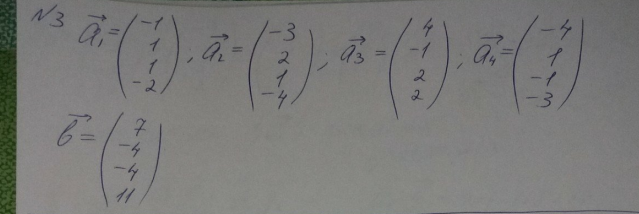 №3 a⃗₁ = (-1 1 1 -2), a⃗₂ = (-3 2 1 -4); a⃗₃ = (4 -1 2 2); a⃗₄ = (-4 1 -1 -3)
b⃗ = (7 -4 -4 11)